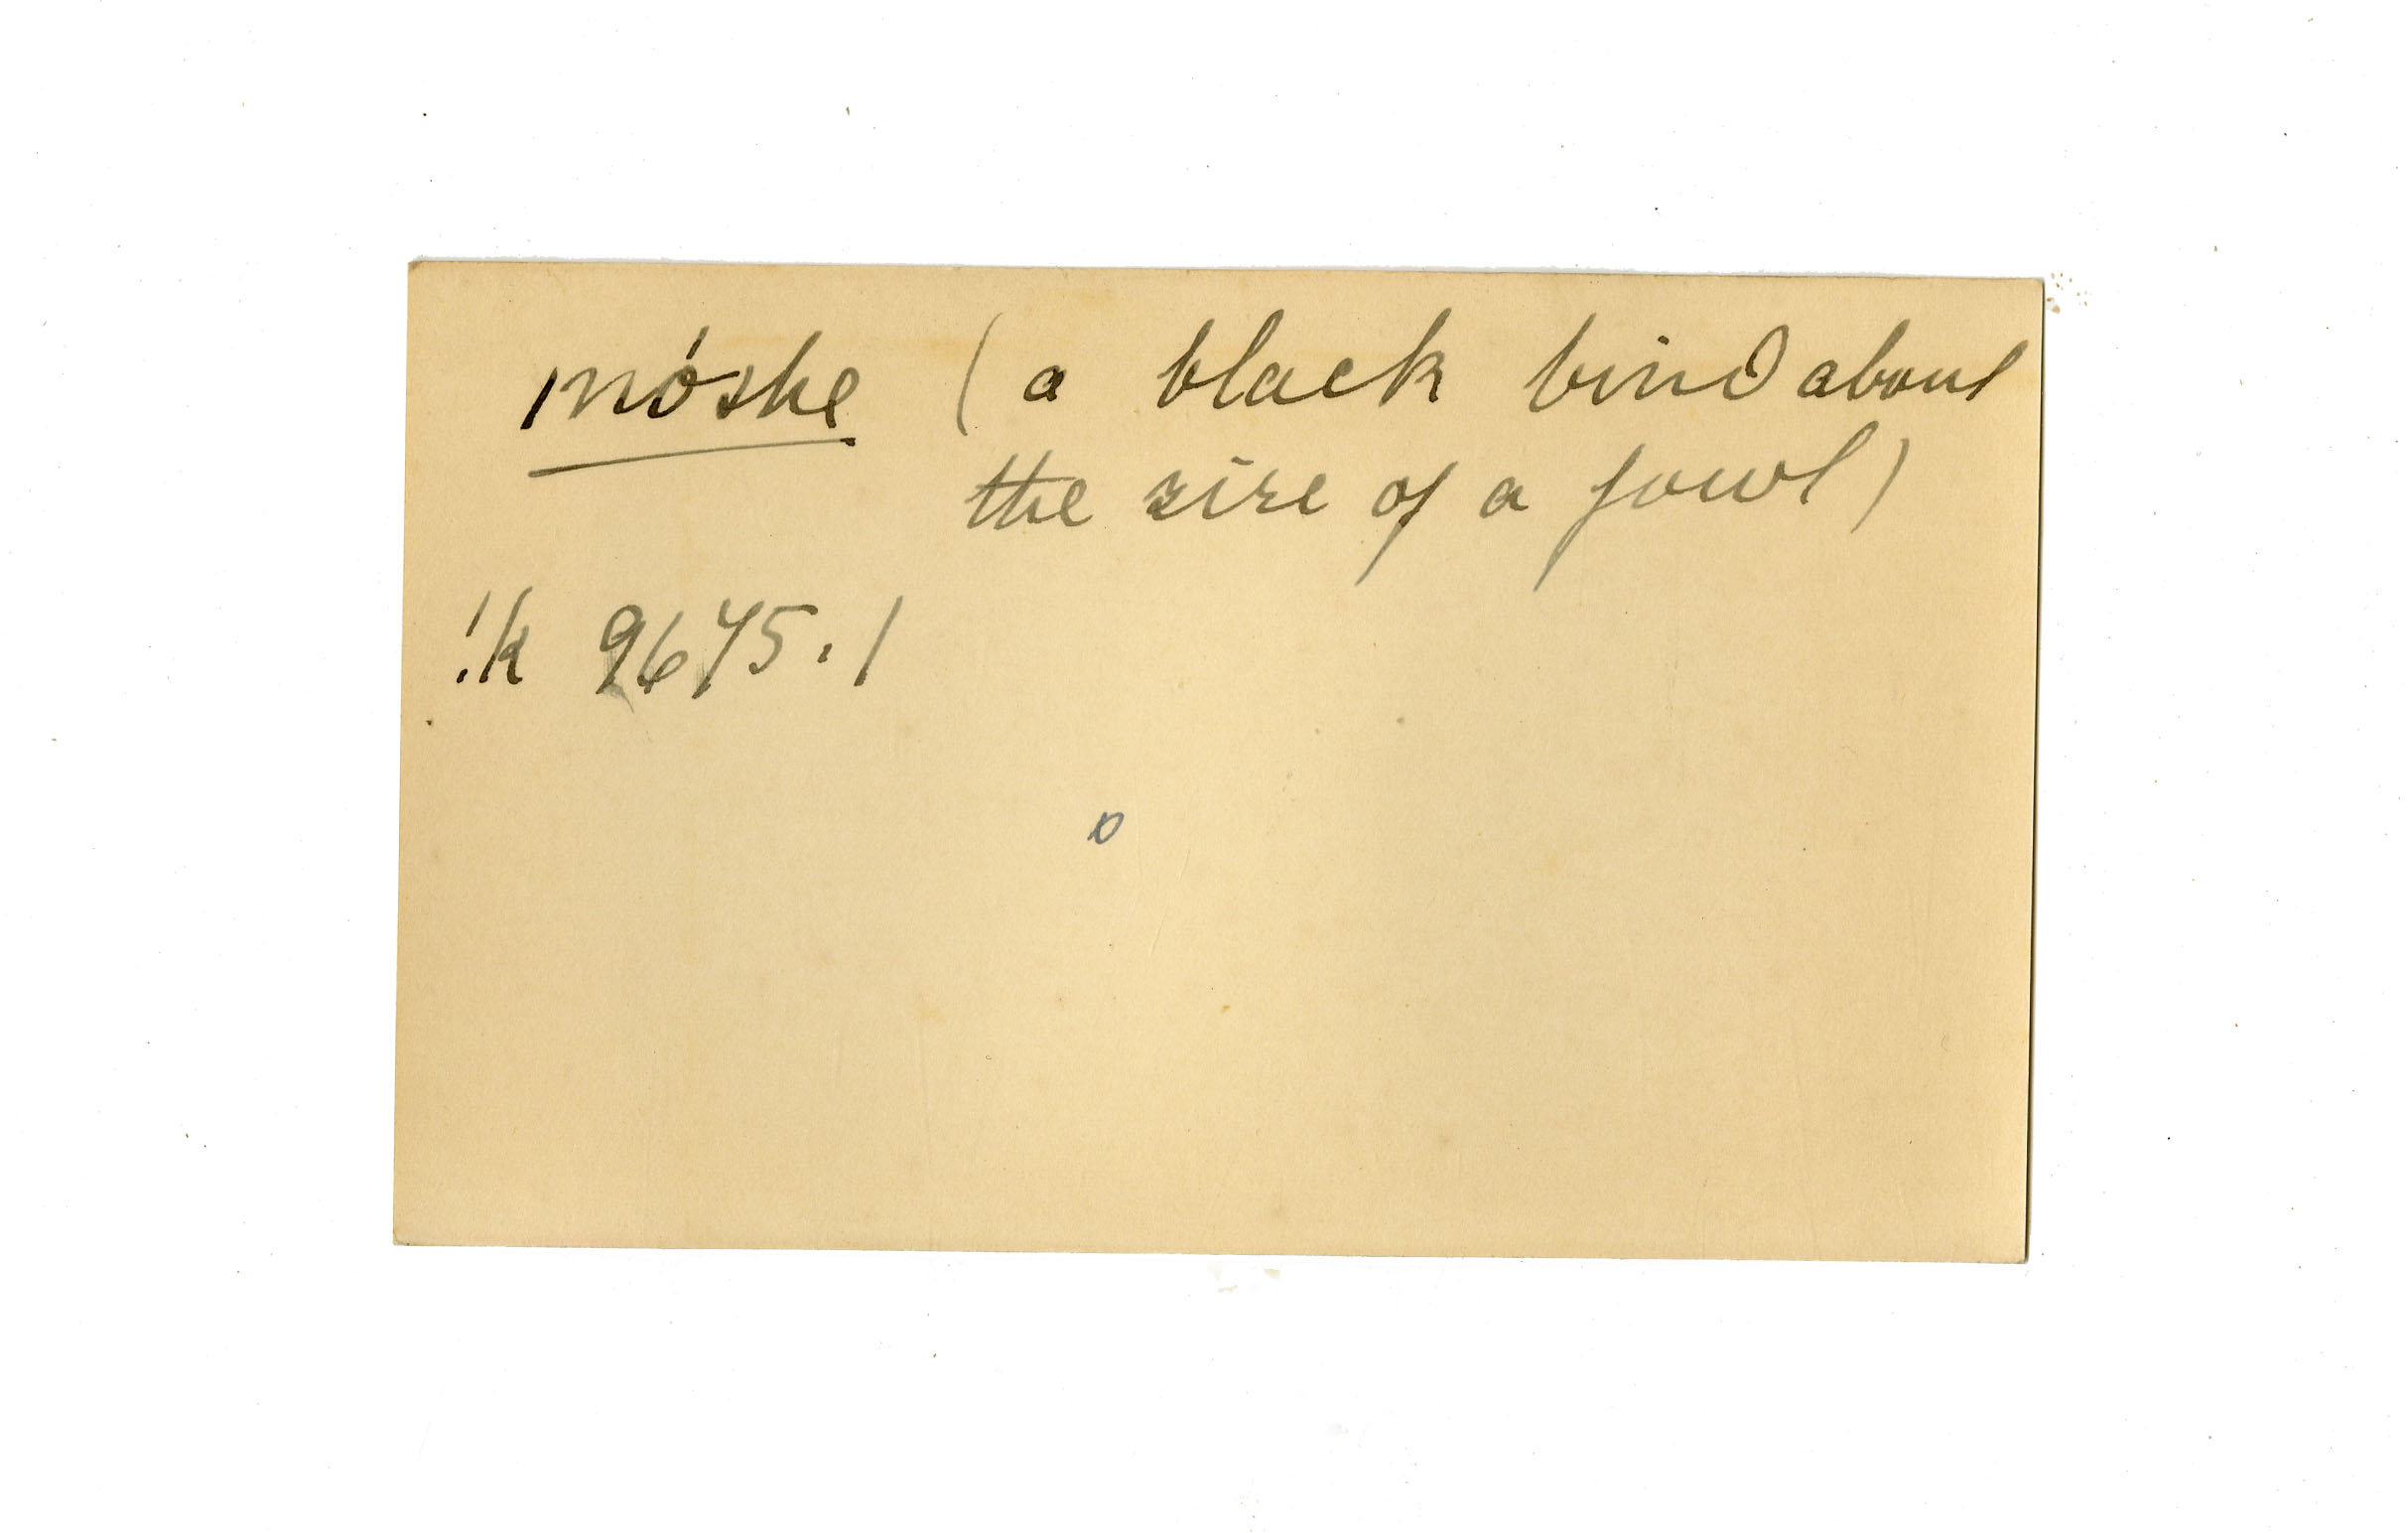 móshe (a black bird about
the size of a fowl)
!k 9675.1
o